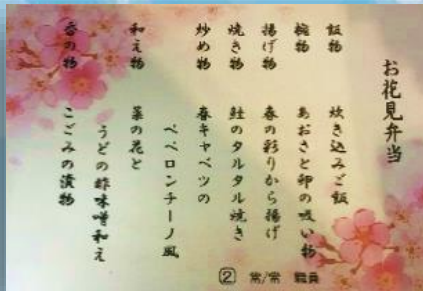 お花見弁当
飯物　炊き込みご飯
椀物　あおさと卵の吸い物
揚げ物　春の彩りから揚げ
焼き物　鮭のタルタル焼き
炒め物　春キャベツの
ペペロンチーノ風
和え物　菜の花と
うどの酢味噌和え
香の物　こごみの漬物
② 常/常 職員